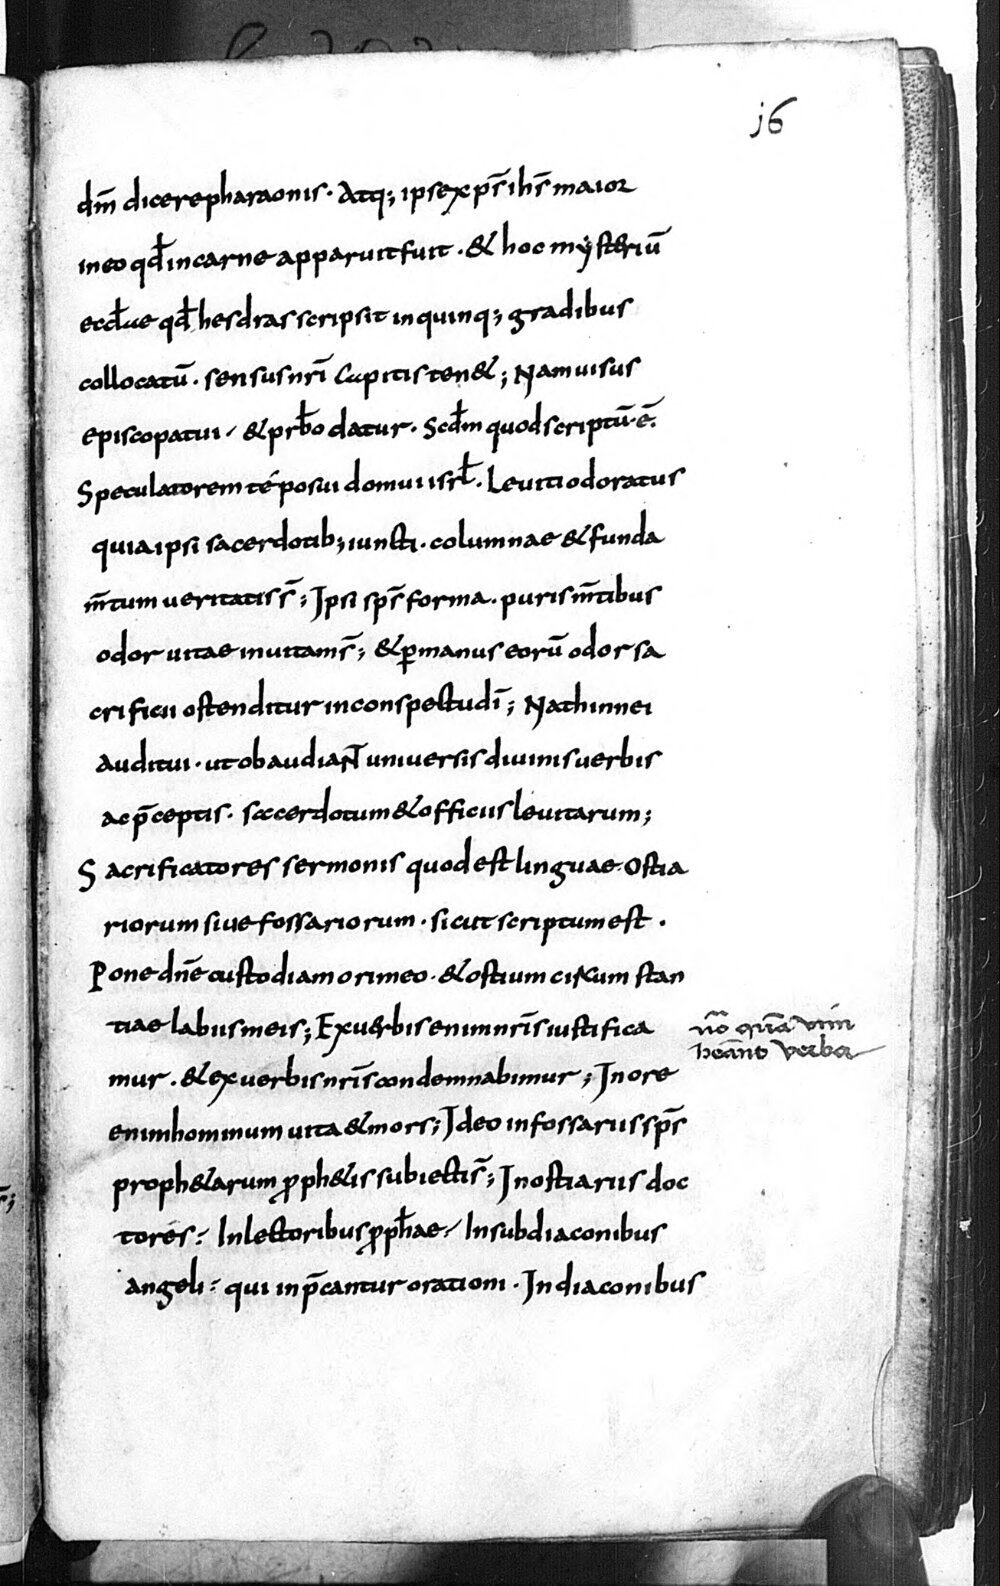 j6
dm̄ dicere pharaonis. Atq; ipse xp̄s ih̄s maior
in eo qđ in carne apparuit fuit. & hoc mysteriū
qđ hesdras scripsit in quinq; gradibus
collocatū. sensus nr̄i capitis ten&; Nam uisus
episcopatui. & datur. Scđm quod scriptū ē.
Speculatorem té posui domui isrł. Leuiti odoratus
quia ipsi sacerdotib; iuncti. columnae & funda
m̄tum ueritatis s̄; Ipsi sp̄s forma. puris m̄tibus
odor uitae in uitam s̄; & p̱ manus eorū odor sa
crificii ostenditur in conspectu dī; Nathinnei
auditui. ut obaudiant uniuersis diuinis uerbis
ac p̄ceptis. saccerdotum & officiis leuitarum;
Sacrificatores sermonis quod est linguae. Ostia
riorum siue fossariorum. sicut scriptum est.
Pone dn̄e custodiam ori meo. & ostium circum stan
tiae labiis meis; Ex uerbis enim nr̄is iustifica
mur. & ex uerbis nr̄is condemnabimur; In ore
enim hominum uita & mors; Ideo in fossariis sp̄s
proph&arum ꝓph&is subiectis s̄; In ostiariis doc
torés. In lectoribus ꝓph̄ae. In subdiaconibus
angeli. qui in p̄cantur orationi. In diaconibus
nō
verba